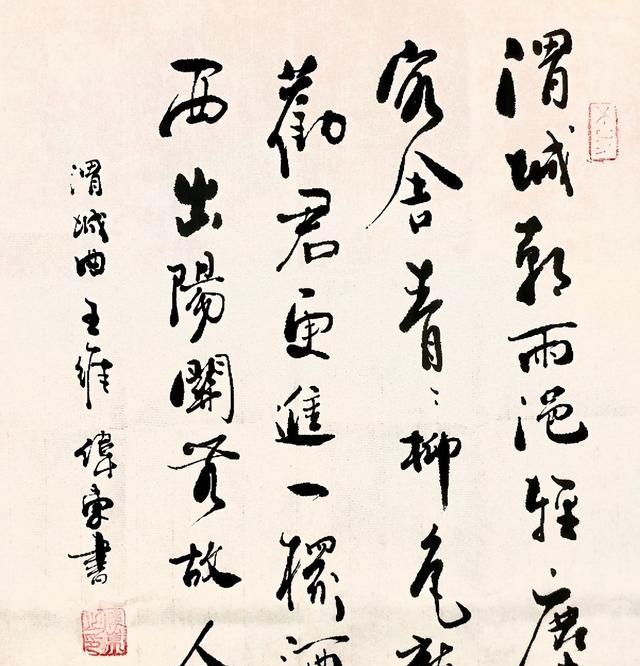 渭城朝雨浥輕塵
客舍青〻柳色新
勸君更進一酒
西出陽關無故人
渭城曲 王維 偉東書